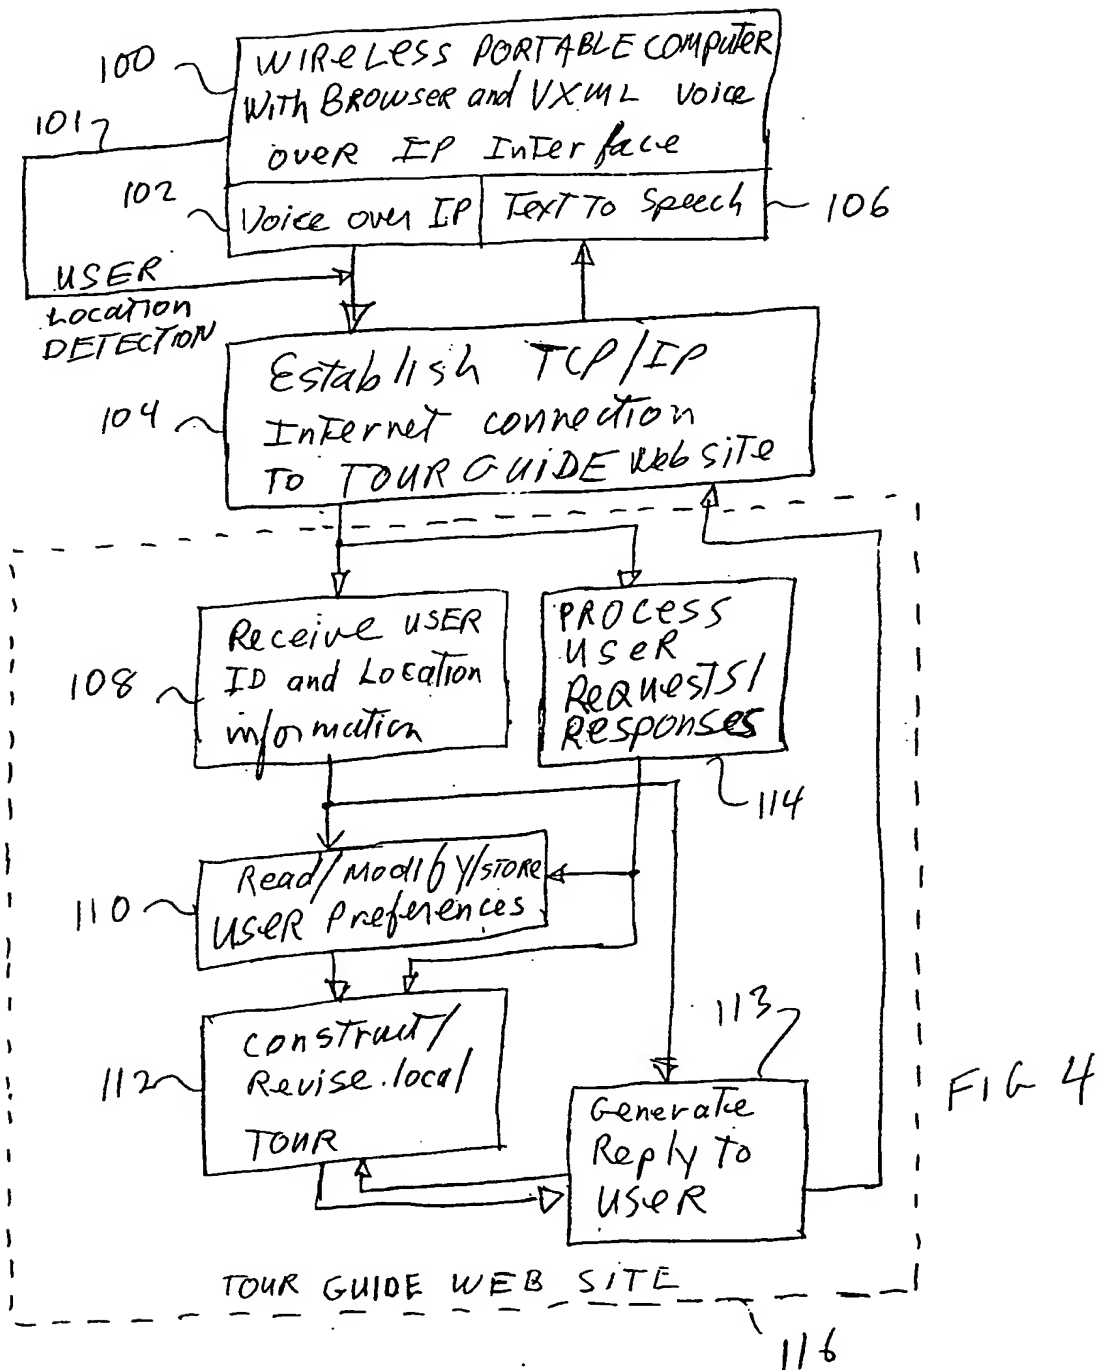 100
WIRELESS PORTABLE COMPUTER
With BROWSER and VXML Voice
over IP Interface
101
102
Voice over IP
Text To Speech
106
USER
Location
DETECTION
Establish TCP/IP
Internet connection
To TOUR GUIDE Web site
104
Receive USER
ID and Location
information
108
PROCESS
USER
Requests/
Responses
114
Read/Modify/STORE
USER Preferences
110
Construct/
Revise local
TOUR
112
113
Generate
Reply to
USER
FIG 4
TOUR GUIDE WEB SITE
116